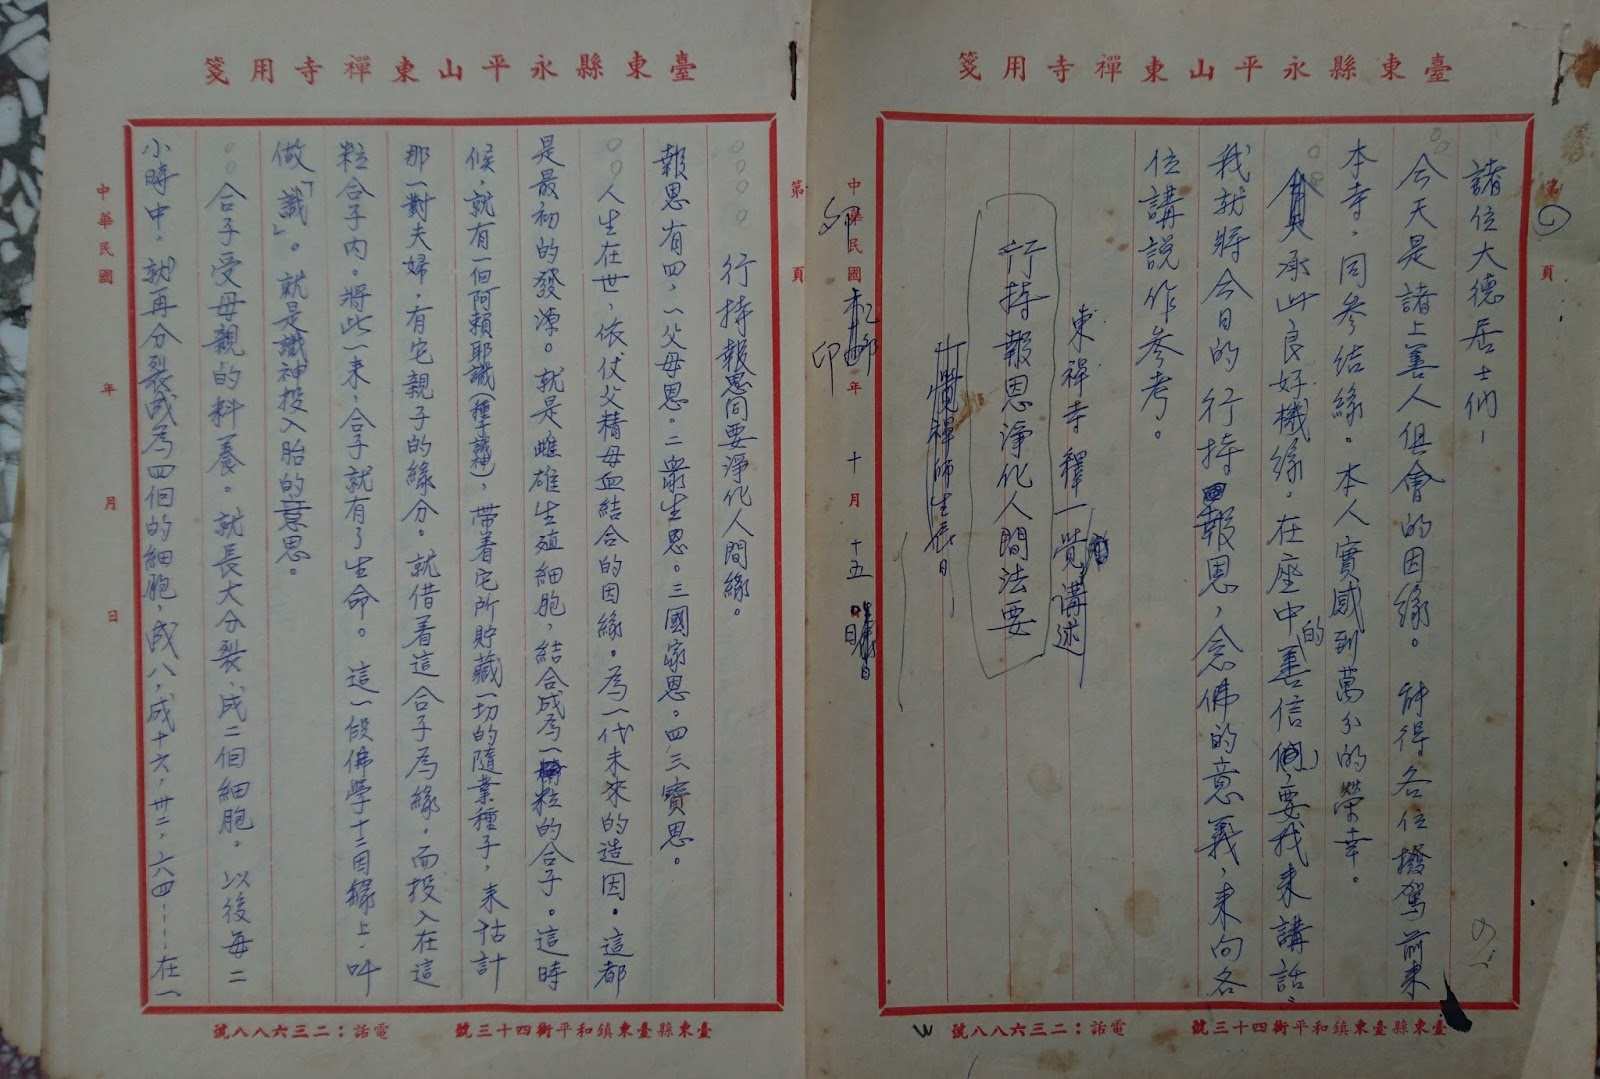 臺東縣永平山東禪寺用箋
第 頁
諸位大德居士們
今天是諸上善人俱會的因緣。能得各位撥駕前來
本寺,同參結緣。本人實感到萬分的榮幸。
承此良好機緣,在座中的善信們,要我來講話,
我就將今日的行持報恩,念佛的意義,來向各
位講說作參考。
東禪寺釋一覺講述
行持報恩淨化人間法要
一覺禪師生辰日
中華民國 年 十 月 十五 日
臺東縣臺東鎮和平街四十三號 電話:二三六八八號
臺東縣永平山東禪寺用箋
第 頁
行持報恩同要淨化人間緣。
報恩有四,一父母恩。二眾生恩。三國家恩。四三寶恩。
人生在世,依仗父精母血結合的因緣。為一代未來的造因。這都
是最初的發源。就是雌雄生殖細胞,結合成為一粒的合子。這時
候,就有一個阿賴耶識(種子識神),帶着它所貯藏一切的隨業種子,來估計
那一對夫婦,有它親子的緣分。就借着這合子為緣,而投入在這
粒合子內。將此一來,合子就有了生命。這一段佛學十二因緣上,叫
做「識」。就是識神投入胎的意思。
合子受母親的料養。就長大分裂,成二個細胞。以後每二
小時中,就再分裂成為四個的細胞,成八,成十六,卅二,六四----在一
中華民國 年 月 日
臺東縣臺東鎮和平街四十三號 電話:二三六八八號